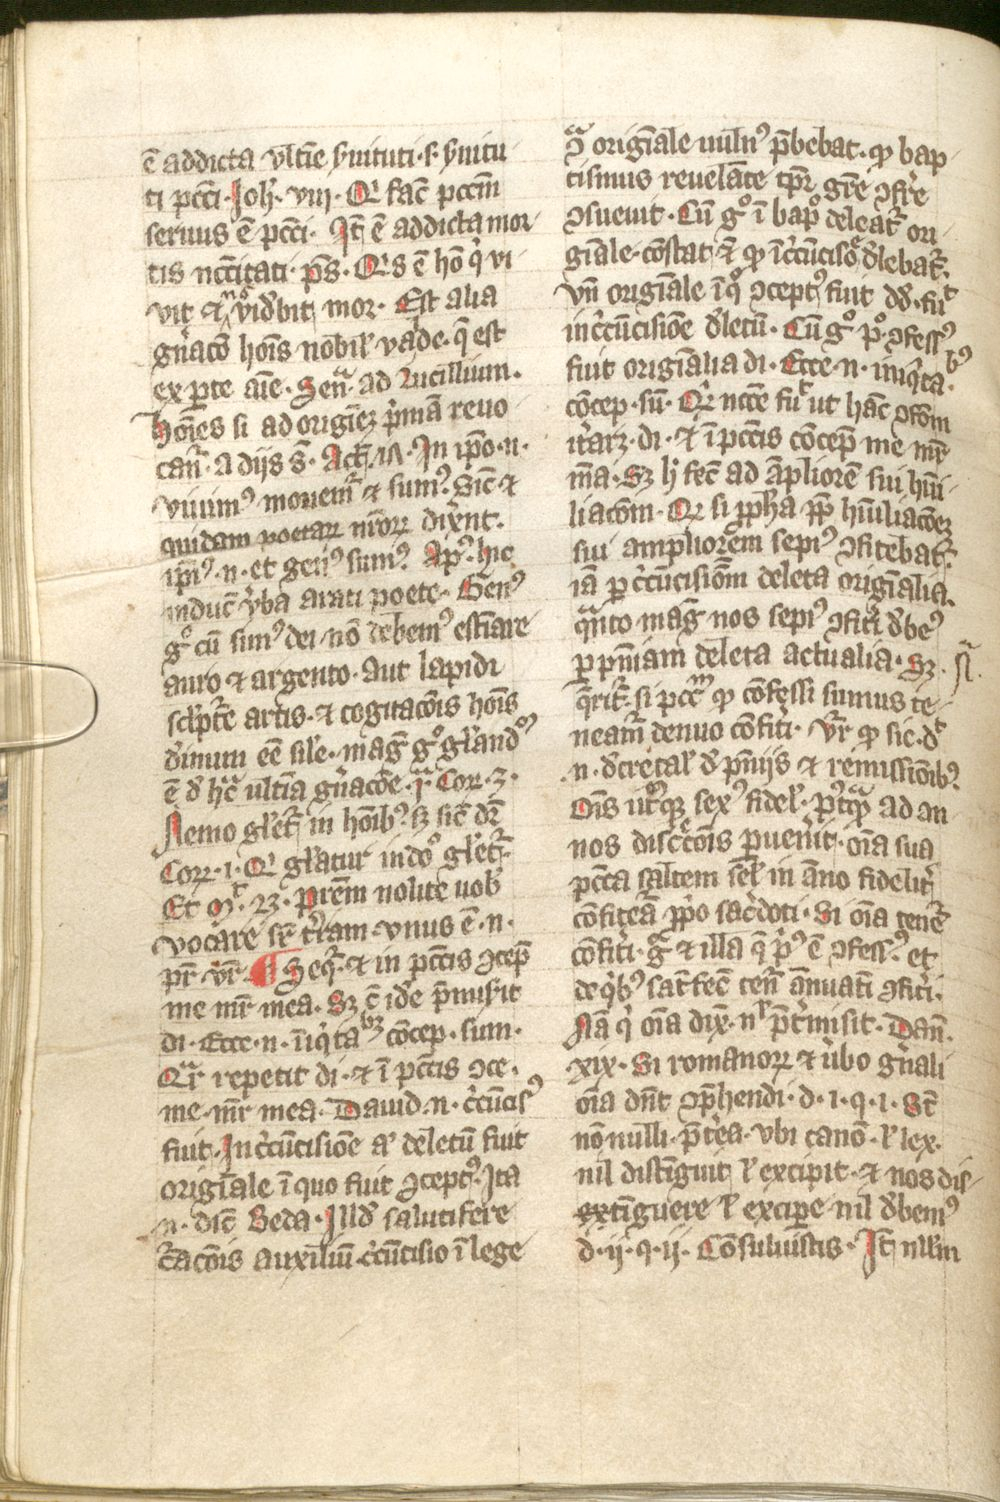 ē addicta vltīe ẜuituti · s · ẜuitu
ti pcc̄i · Joh̄ · viij · Qi fac̄ pcc̄m
seruus ē pcc̄i · Jt̄ ē addicta mor
tis ncc̄itati · ps̄ · Qis ē hō qͥ vi
vit et nō videbit mor · Est alia
gn̄acō hoīs nōbil' valde · q̄ est
ex ꝑte aīe · Sen̄ · ad lucillium ·
Hoīes si ad origīeꝫ pͥmā reuo
can̄t̄ · a dijs st̄ · Act̄ · In ip̄o · n ·
viuimꝰ mouemr̄ et sumꝰ · Sic̄ et
quidam poetar̄ nr̄orꝝ dix̄nt ·
ip̄iꝰ · n · et genꝰ sumꝰ · Apꝰ · hic
induc̄ v̄ba arati poete · Genꝰ
gͦ cū simꝰ dei · nō debemꝰ estīare
auro et argento · aut lapidi
sclpt̄e artis · et cogitacōis hoīs
diuinū eē sil'e · mag̅ gͦ gl'andͦꝫ
ē de hͣc ultīa gn̄acōe · Cor · 3 ·
Nemo gl'et̄ in hoībꝫ sꝫ sic̄ dr̄
Corꝝ · 1 · Qi gl'atur in dōo gl'et̄ ·
Et Mͭ · 23 · Pr̄em nolite uob̄
vocare sr̄ tr̄am · vnus ē · n ·
pr̄ vr̄ · ¶ Seqͥ · et in pcc̄is ꝯcep̄
me mr̄ mea · Sꝫ ē idē p̄misit
di · Ecce · n · īiqͥtabꝫ cōcep · sum ·
Qͣr repetit di · et ī pcc̄is ꝯce ·
me · mr̄ mea · Dauid · n · cͥcūcisꝰ
fuit · In cͥcūcisiōe aͭ deletū fuit
origīale ī quo fuit ꝯceptꝰ · Ita
· n · dic̄ Beda · Illd̄ salutifere
cͥacōis auxiliū · cͥcūcisio ī lege
ꝯͣ origīale uulnꝰ p̄bebat · qͦ bap
tismus reuelāte tp̄r grē ꝯfr̄e
ꝯsueuit · Cū gͦ ī bapͦ deleat̄ ori
giāle · cōstat et qͦ ī cͥcūcisōe delebat̄ ·
Vn̄ origīale ī qͦ ꝯceptꝰ fuit dd̄ · fuͭ
in cͥcūcisiōe deletū · Cū gͦ pͦ ꝯfessꝰ
fuit origīalia di · Ecce · n · iniqͥtabꝫ ·
cōcep · sū · Qͣr ncc̄e fuͭ ut hāc ꝯfōm
itͣrarꝫ · di · et ī pcc̄is cōcep̄ me mr̄
m̄a · Sꝫ hͥ fec̄ ad āpliorē sui hūi
liacōm · Qr̄ si ꝓph̄a ꝓp̄ hūiliacōeꝫ
sui ampliorem sepiꝰ ꝯfitebat̄ ·
iā ꝑ cͥcūcisiōm deleta origīalia ·
qͣnto mag̅ nos sepiꝰ ꝯfitͥi debeꝰ
ꝑ pn̄iam deleta actualia · Sꝫ
q̄rit̄ · si pcc̄m̄ qͦ cōfessi sumus te
neam̄ denuo cōfitͥi · Vr̄ qͦ sic · dͭ
· n · decretal' de pn̄ijs et remissiōibꝰ ·
Oīs utͥqꝫ sexꝰ fidel' · pꝰtqͣ ad an
nos discͤcōis ꝑuen̄it · oīa sua
pcc̄a saltem sel' in āno fidelit̄
cōfiteā ꝓpͦ sac̄doti · Si oīa tenēt̄
cōfitͥi · gͦ et illa q̄ pͥꝰ ē ꝯfessꝰ · et
de qͥbꝫ satͥfec̄ ten̄ ānuatī ꝯfitͥi ·
Nā qͥ oīa dix̄ · nͥl p̄tͥmisit · Dan̄ ·
xix · Si romanorꝝ et v̄bo gn̄ali
oīa dn̄t ꝯp̄hendi · d · 1 · q · 1 · St̄
nō nulli · p̄tͤea · vbi canō · l' lex ·
nil distīguit l' excipit · et nos dis
extīguere l' excipe nil debemꝰ
d · ij · q · ij · Cōsuluistis · Jt̄ nllm̄